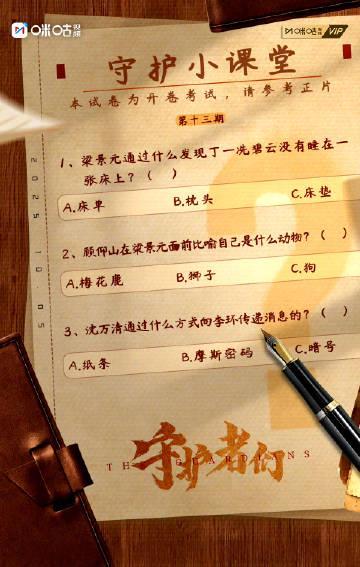 咪咕视频
咪咕视频 VIP
守护小课堂
本试卷为开卷考试，请参考正片
第十三期
1、梁景元通过什么发现丁一冼碧云没有睡在一
张床上？（ ）
A.床单 B.枕头 C.床垫
2、顾仰山在梁景元面前比喻自己是什么动物？（ ）
A.梅花鹿 B.狮子 C.狗
3、沈万清通过什么方式向李环传递消息的？（ ）
A.纸条 B.摩斯密码 C.暗号
2025 10.05
守护者们
THE GUARDIANS